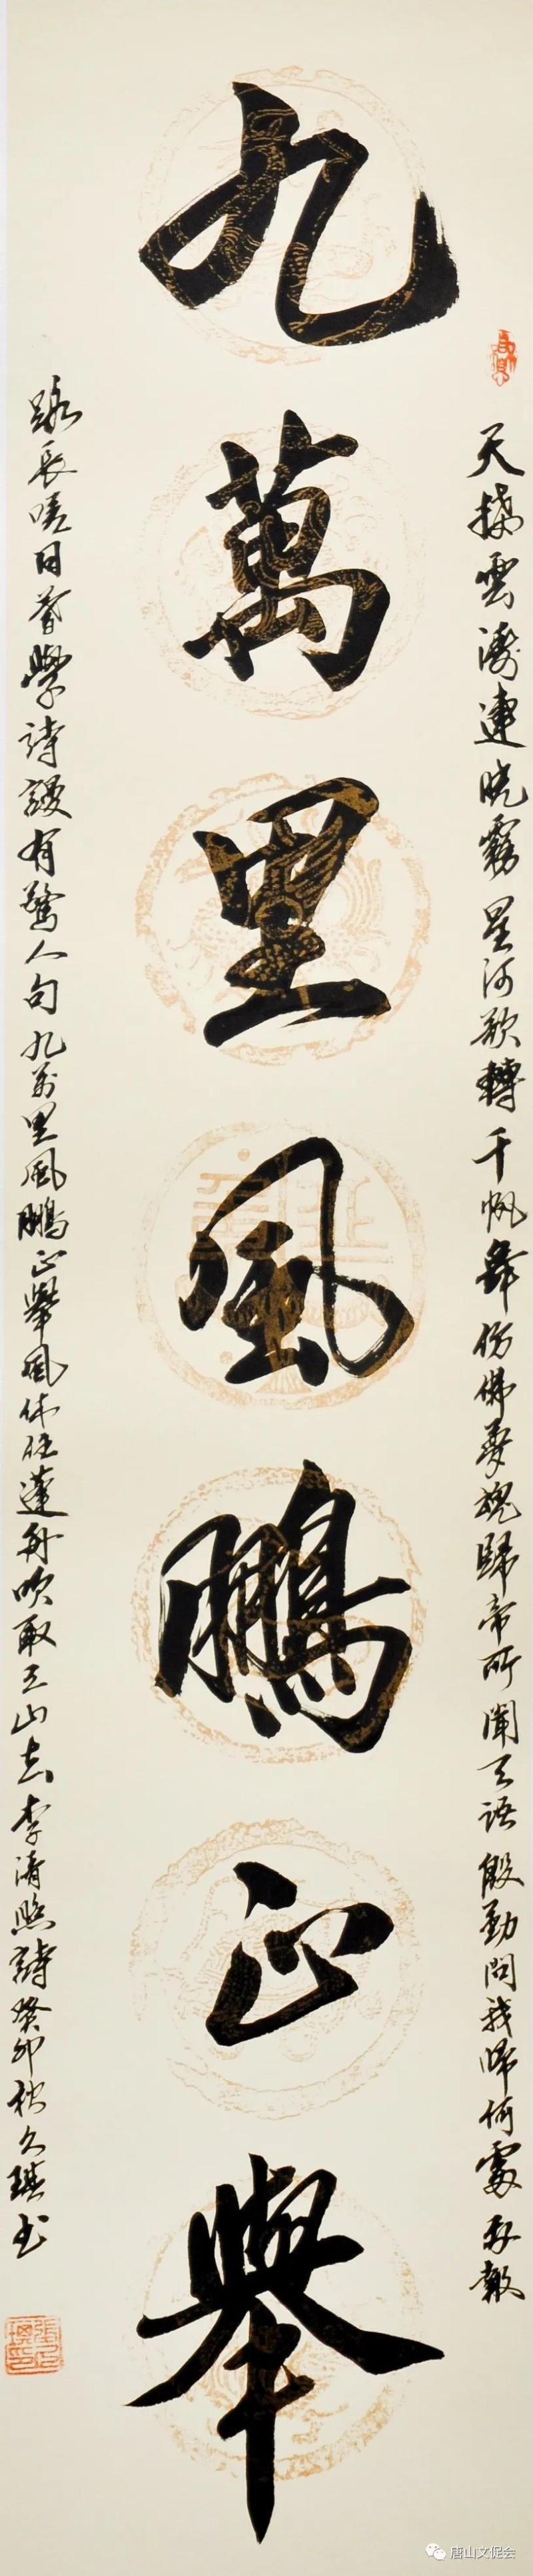 九萬里風鵬正舉
天接雲濤連曉霧星河欲轉千帆舞仿佛夢魂歸帝所聞天語殷勤問我歸何處我報
路長嗟日暮學詩謾有驚人句九萬里風鵬正舉風休住蓬舟吹取三山去李清照詩癸卯秋久琪书
唐山文促会